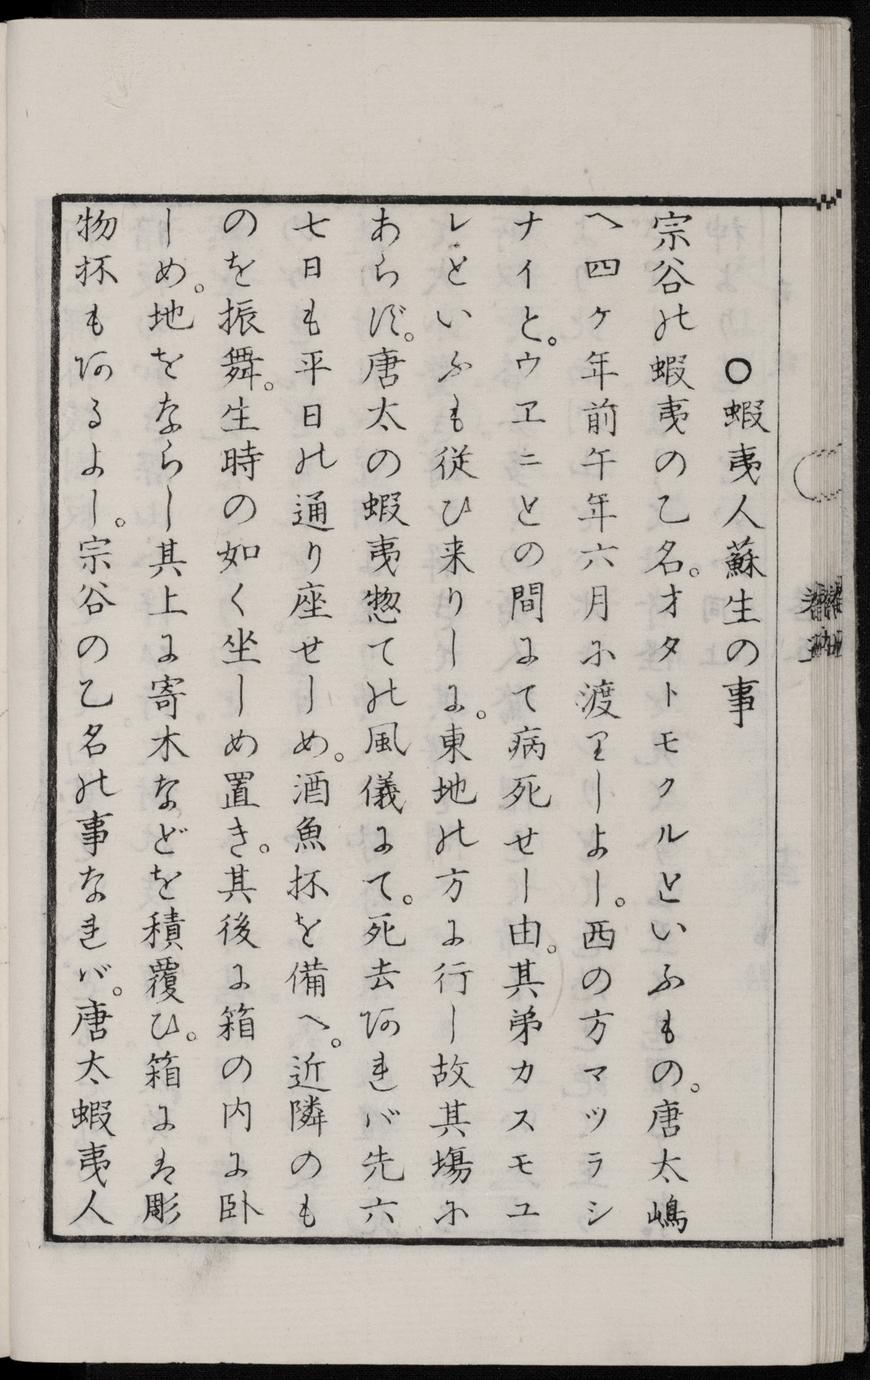 ○蝦夷人蘇生の事
宗谷の蝦夷の乙名。オタトモクルといふもの。唐太嶋
へ四ケ年前午年六月に渡りしよし。西の方マツラシ
ナイと。ウヱニとの間にて病死せし由。其弟カスモユ
レといふも従ひ来りしに。東地の方に行し故其塲に
あらず。唐太の蝦夷惣ての風儀にて。死去あれバ先六
七日も平日の通り座せしめ。酒魚抔を備へ。近隣のも
のを振舞。生時の如く坐しめ置き。其後に箱の内に卧
しめ。地をならし其上に寄木などを積覆ひ。箱には彫
物抔もあるよし。宗谷の乙名の事なれバ。唐太蝦夷人